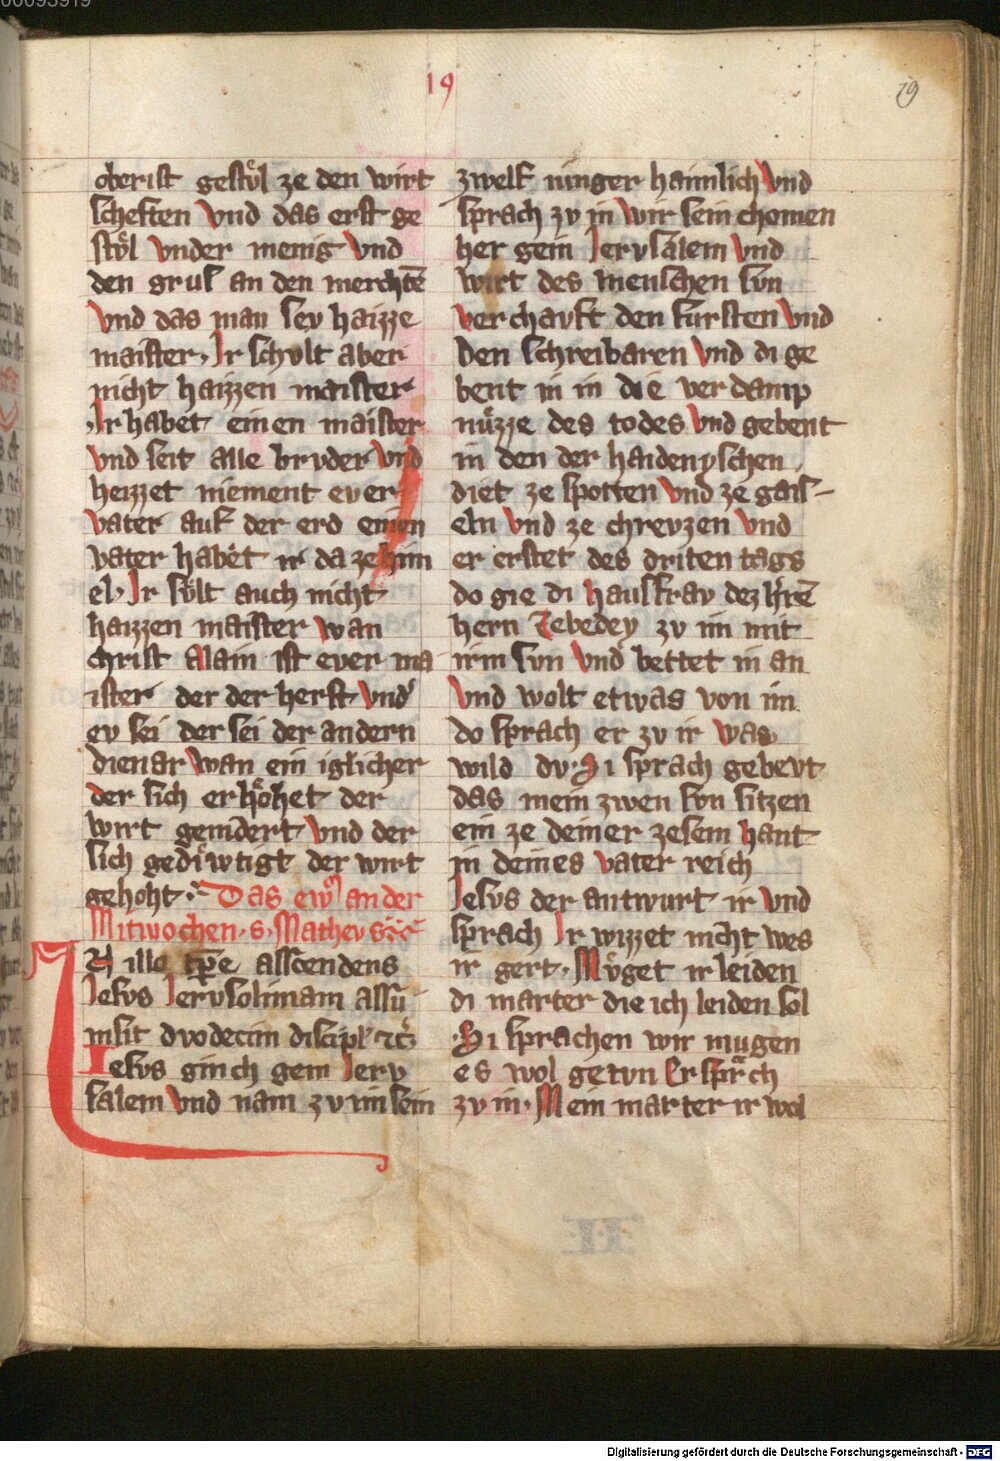 00093919
19
19
oberist gestůl ze den wirt
scheften vnd das erst ge
stůl vnder menig vnd
den grus an den merchtē
vnd das man sev haizze
maister. Ir schvlt aber
nicht haizzen maister
Ir habet einen maister
vnd seit alle brvder vnd
heizzet niement ever
vater auf der erd einen
vater habēt ir da ze him
el. Ir sůlt auch nicht
haizzen maister wan
christ alain ist ever ma
ister der der herst vnd
ev sei der sei der andern
dienar wan ein iglicher
der sich erhőhet der
wirt gemdert vnd der
sich gediẘtigt der wirt
gehoht. Das ew̄ an der
Mitwochen. s. Mathevs
In illo tp̄e asscendens
Iesvs Iervsolimam assū
msit dvodecim discipl' ⁊c̄
Iesvs ginch gem Ierv
salem vnd nam zv im sein
zwelf iunger haimlich vnd
sprach zv in wir sein chomen
her gein Iervsalem vnd
wirt des menschen svn
verchavft den fursten vnd
den schreibaren vnd di ge
bent in in die verdamp
nűzze des todes vnd gebent
in den der haidenyschen
diet ze spotten vnd ze gais-
eln vnd ze chrevzen vnd
er erstet des driten tags
do gie di hausfrav dez hr̄rē
hern Zebedey zv im mit
irm svn vnd bettet in an
vnd wolt etwas von im
do sprach er zv ir was
wild dv. Si sprach gebevt
das mein zwen svn sitzen
ein ze deiner zesem hant
in deines vater reich
Iesvs der antwurt ir vnd
sprach Ir wizzet nicht wes
ir gert. Műget ir leiden
di marter die ich leiden sol
Si sprachen wir mugen
es wol getvn Er sprach
zv in. Mein marter ir wol
Digitalisierung gefördert durch die Deutsche Forschungsgemeinschaft - DFG